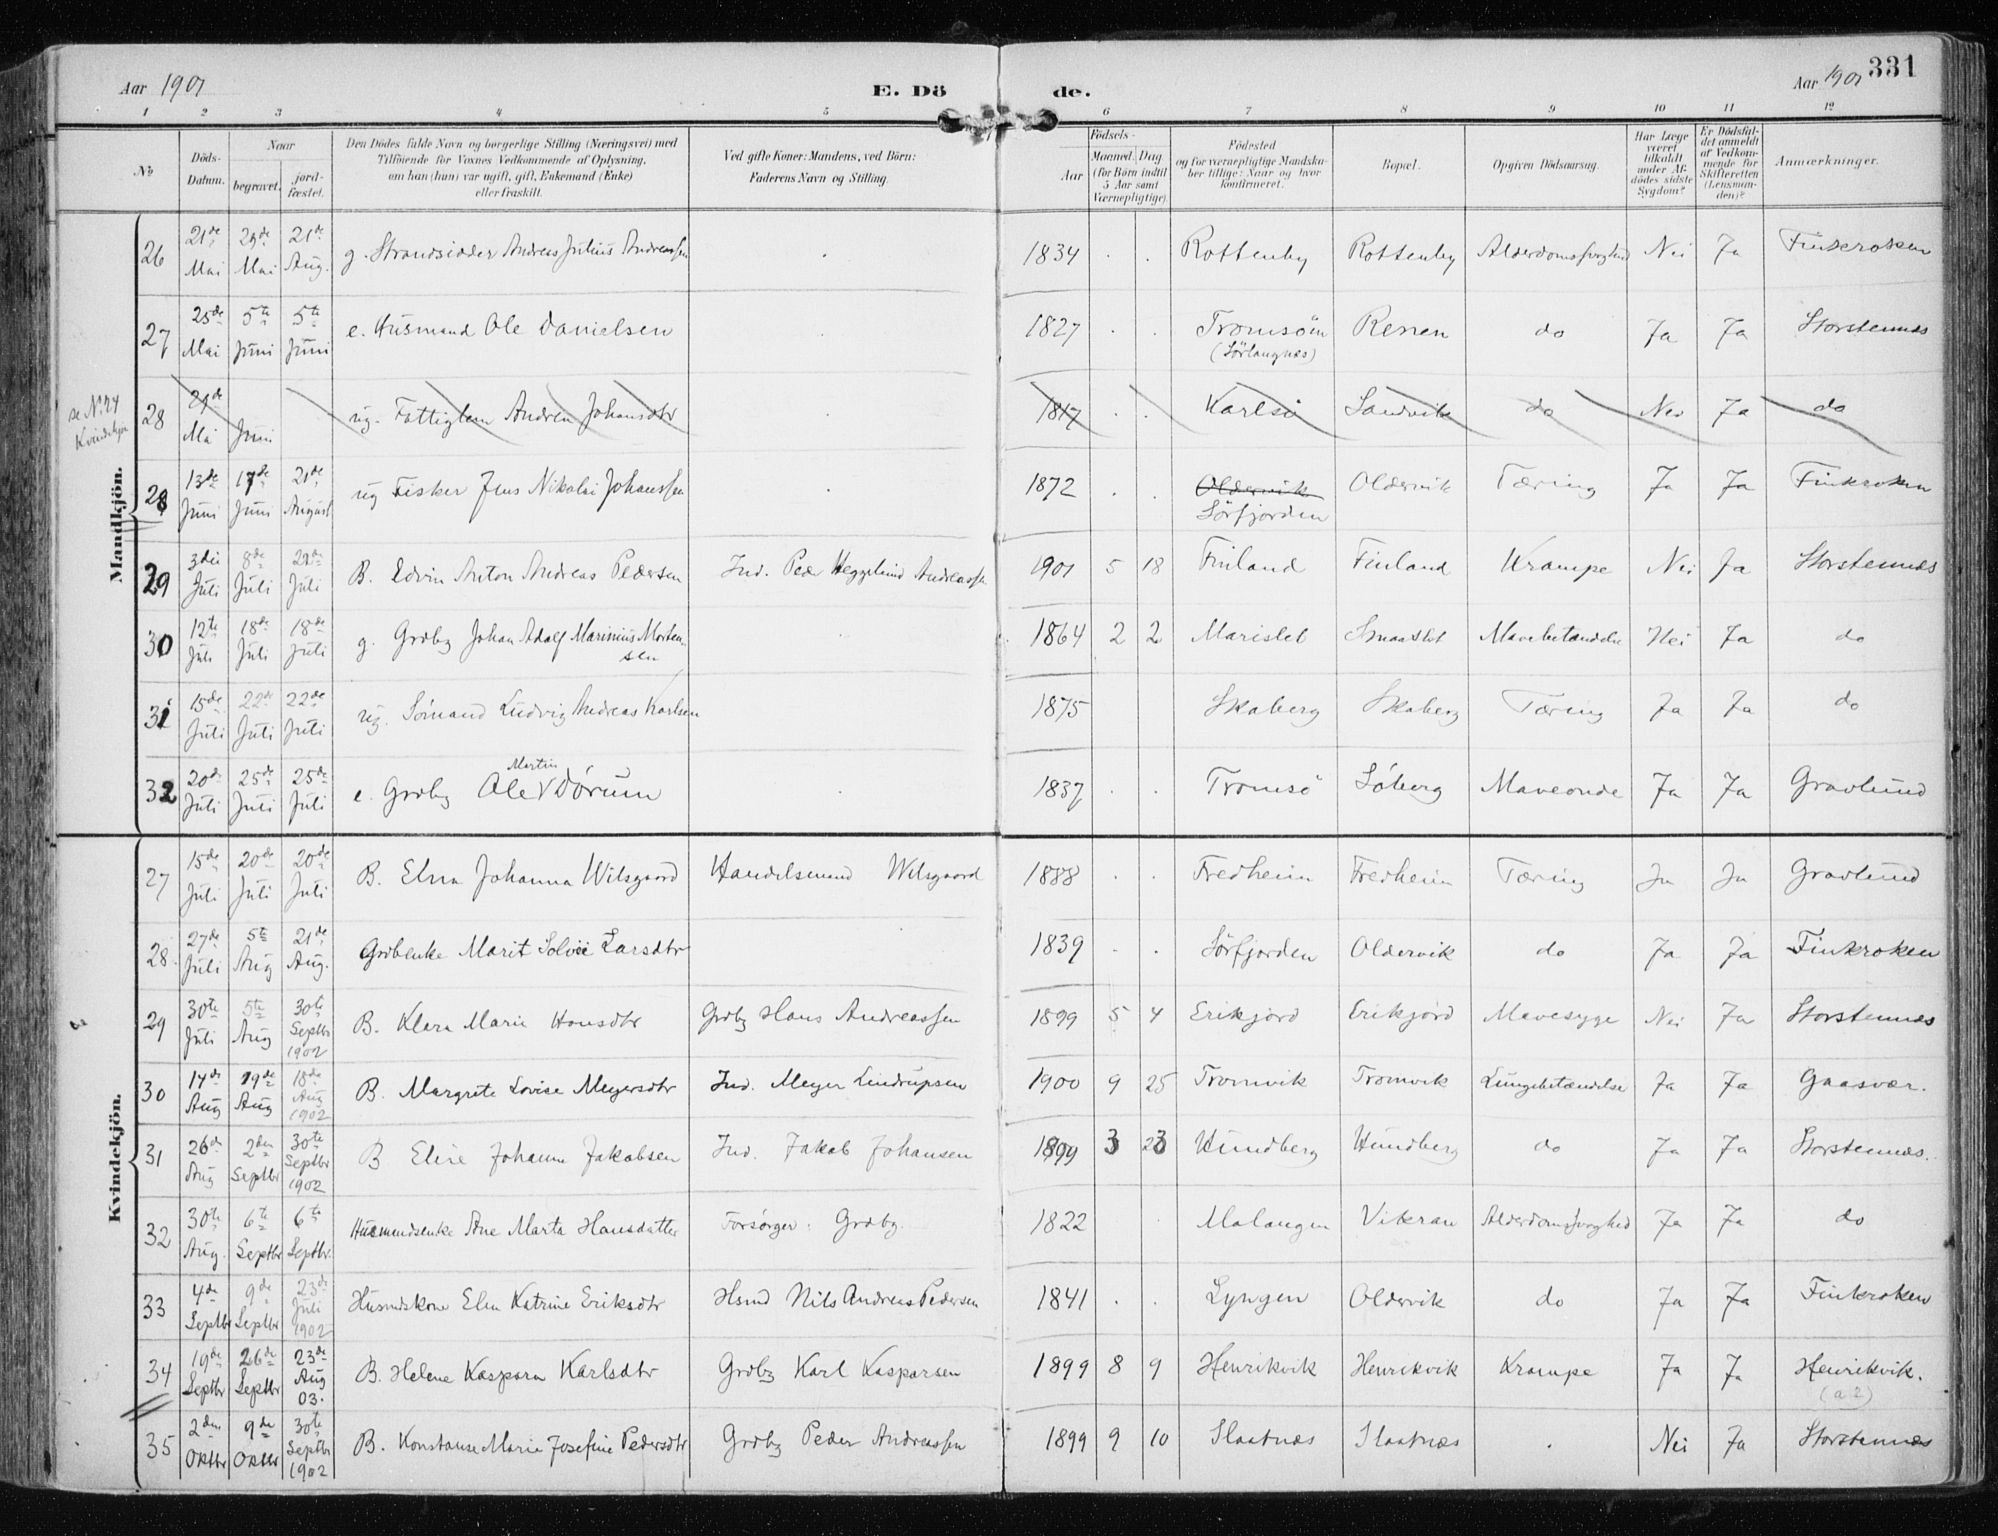 Aar 1901 E. Dö de. Aar 1901 331
1 2 3 4 5 6 7 8 9 10 11 12
No Döds-Datum. Naar begravet. jord-fæstet. Den Dödes fulde Navn og borgerlige Stilling (Næringsvei) med Tilföiende for Voxnes Vedkommende af Oplysning, om han (hun) var ugift, gift, Enkemand (Enke) eller fraskilt. Ved gifte Koner: Mandens, ved Börn: Faderens Navn og Stilling. Födsels- Aar Maaned. Dag (for Börn indtil 5 Aar samt Værnepligtige) Födested og for værnepligtige Mandsku-ber tillige: Naar og hvor konfirmeret. Bopæl. Opgiven Dödsaarsag. Har Læge været tilkaldt under Af-dödes sidste Sygdom? Er Dödsfal-det anmeldt af Vedkom-mende for Skifteretten (Lensman-den)? Anmærkninger.
Mandkjön.
26 21de Mai 29de Mai 21de Aug. g. Strandsidder Andreas Julius Andreassen 1834 . . Rottenby Rottenby Alderdomssvaghed Nei Ja Finkroken
27 25de Mai 5te Juni 5te Juni e. Husmand Ole Danielsen 1827 . . Tromsöen (Sörlangnes) Renen do Ja Ja Storstennes
se No 24 Kvindekjøn
28 29de Mai Juni ug. Fattiglem Andrea Johansdtr 1817 . . Karlsö Sandvik do Nei Ja do
28 13de Juni 17de Juni 21de August ug Fisker Jens Nikolai Johanssen 1872 . . Oldervik Sörfjorden Oldervik Tæring Ja Ja Finkroken
29 3die Juli 8de Juli 22de Juli B. Edvin Anton Andreas Pedersen Ind. Peder Heggelund Andreassen 1901 5 18 Finland Finland Krampe Nei Ja Storstennes
30 12te Juli 18de Juli 18de Juli g. Grdbr Johan Adolf Marinius Mortensen 1864 2 2 Marislet Smaaslet Mavebetændelse Nei Ja do
31 15de Juli 22de Juli 22de Juli ug. Sömand Ludvig Andreas Karlsen 1875 Skaberg Skaberg Tæring Ja Ja do
32 20de Juli 25de Juli 25de Juli e. Grdbr Ole Martin Dörum 1837 . . Tromsö Söberg Maveonde Ja Ja Gravlund
Kvindekjön.
27 15de Juli 20de Juli 20de Juli B. Elna Johanna Wilsgaard Handelsmand Wilsgaard 1888 . . Fredheim Fredheim Tæring Ja Ja Gravlund
28 27de Juli 5te Aug 21de Aug. Grdbenke Marit Solvei Larsdtr 1839 . . Sörfjorden Oldervik do Ja Ja Finkroken
29 30te Juli 5te Aug 30te Septbr 1902 B. Klara Marie Hansdtr Grdbr Hans Andreassen 1899 5 4 Erikjord Erikjord Mavesyge Nei Ja Storstennes
30 14de Aug 19de Aug 18de Aug 1902 B. Margrete Lovise Meyersdtr Ind. Meyer Lindrupsen 1900 9 25 Tromvik Tromvik Lungebetændelse Ja Ja Gaasvær.
31 26de Aug 2den Septbr 30te Septbr 1902 B Elise Johanne Jakobsen Ind. Jakob Johansen 1899 3 23 Hundberg Hundberg do Ja Ja Storstennes.
32 30te Aug. 6te Septbr 6te Septbr. Husmandsenke Ane Marta Hansdatter Forsörger: Grdbr. 1822 . Malangen Vikran Alderdomssvaghed Ja Ja do
33 4de Septbr 9de Septbr 23de Juli 1902 Husmdskone Elen Katrine Eriksdtr Hsmd Nils Andreas Pedersen 1841 . . Lyngen Oldervik do Ja Ja Finkroken
34 19de Septbr 26de Septbr 23de Aug 03. B. Helene Kaspara Karlsdtr Grdbr Karl Kaspersen 1899 8 9 Henrikvik Henrikvik Krampe Ja Ja Henrikvik. (a 2)
35 2den Oktbr 9de Oktbr 30te Septbr 1902 B. Konstanse Marie Josefine Pedersdtr Grdbr Peder Andreassen 1899 9 10 Slaatnæs Slaatnæs . Nei Ja Storstennes